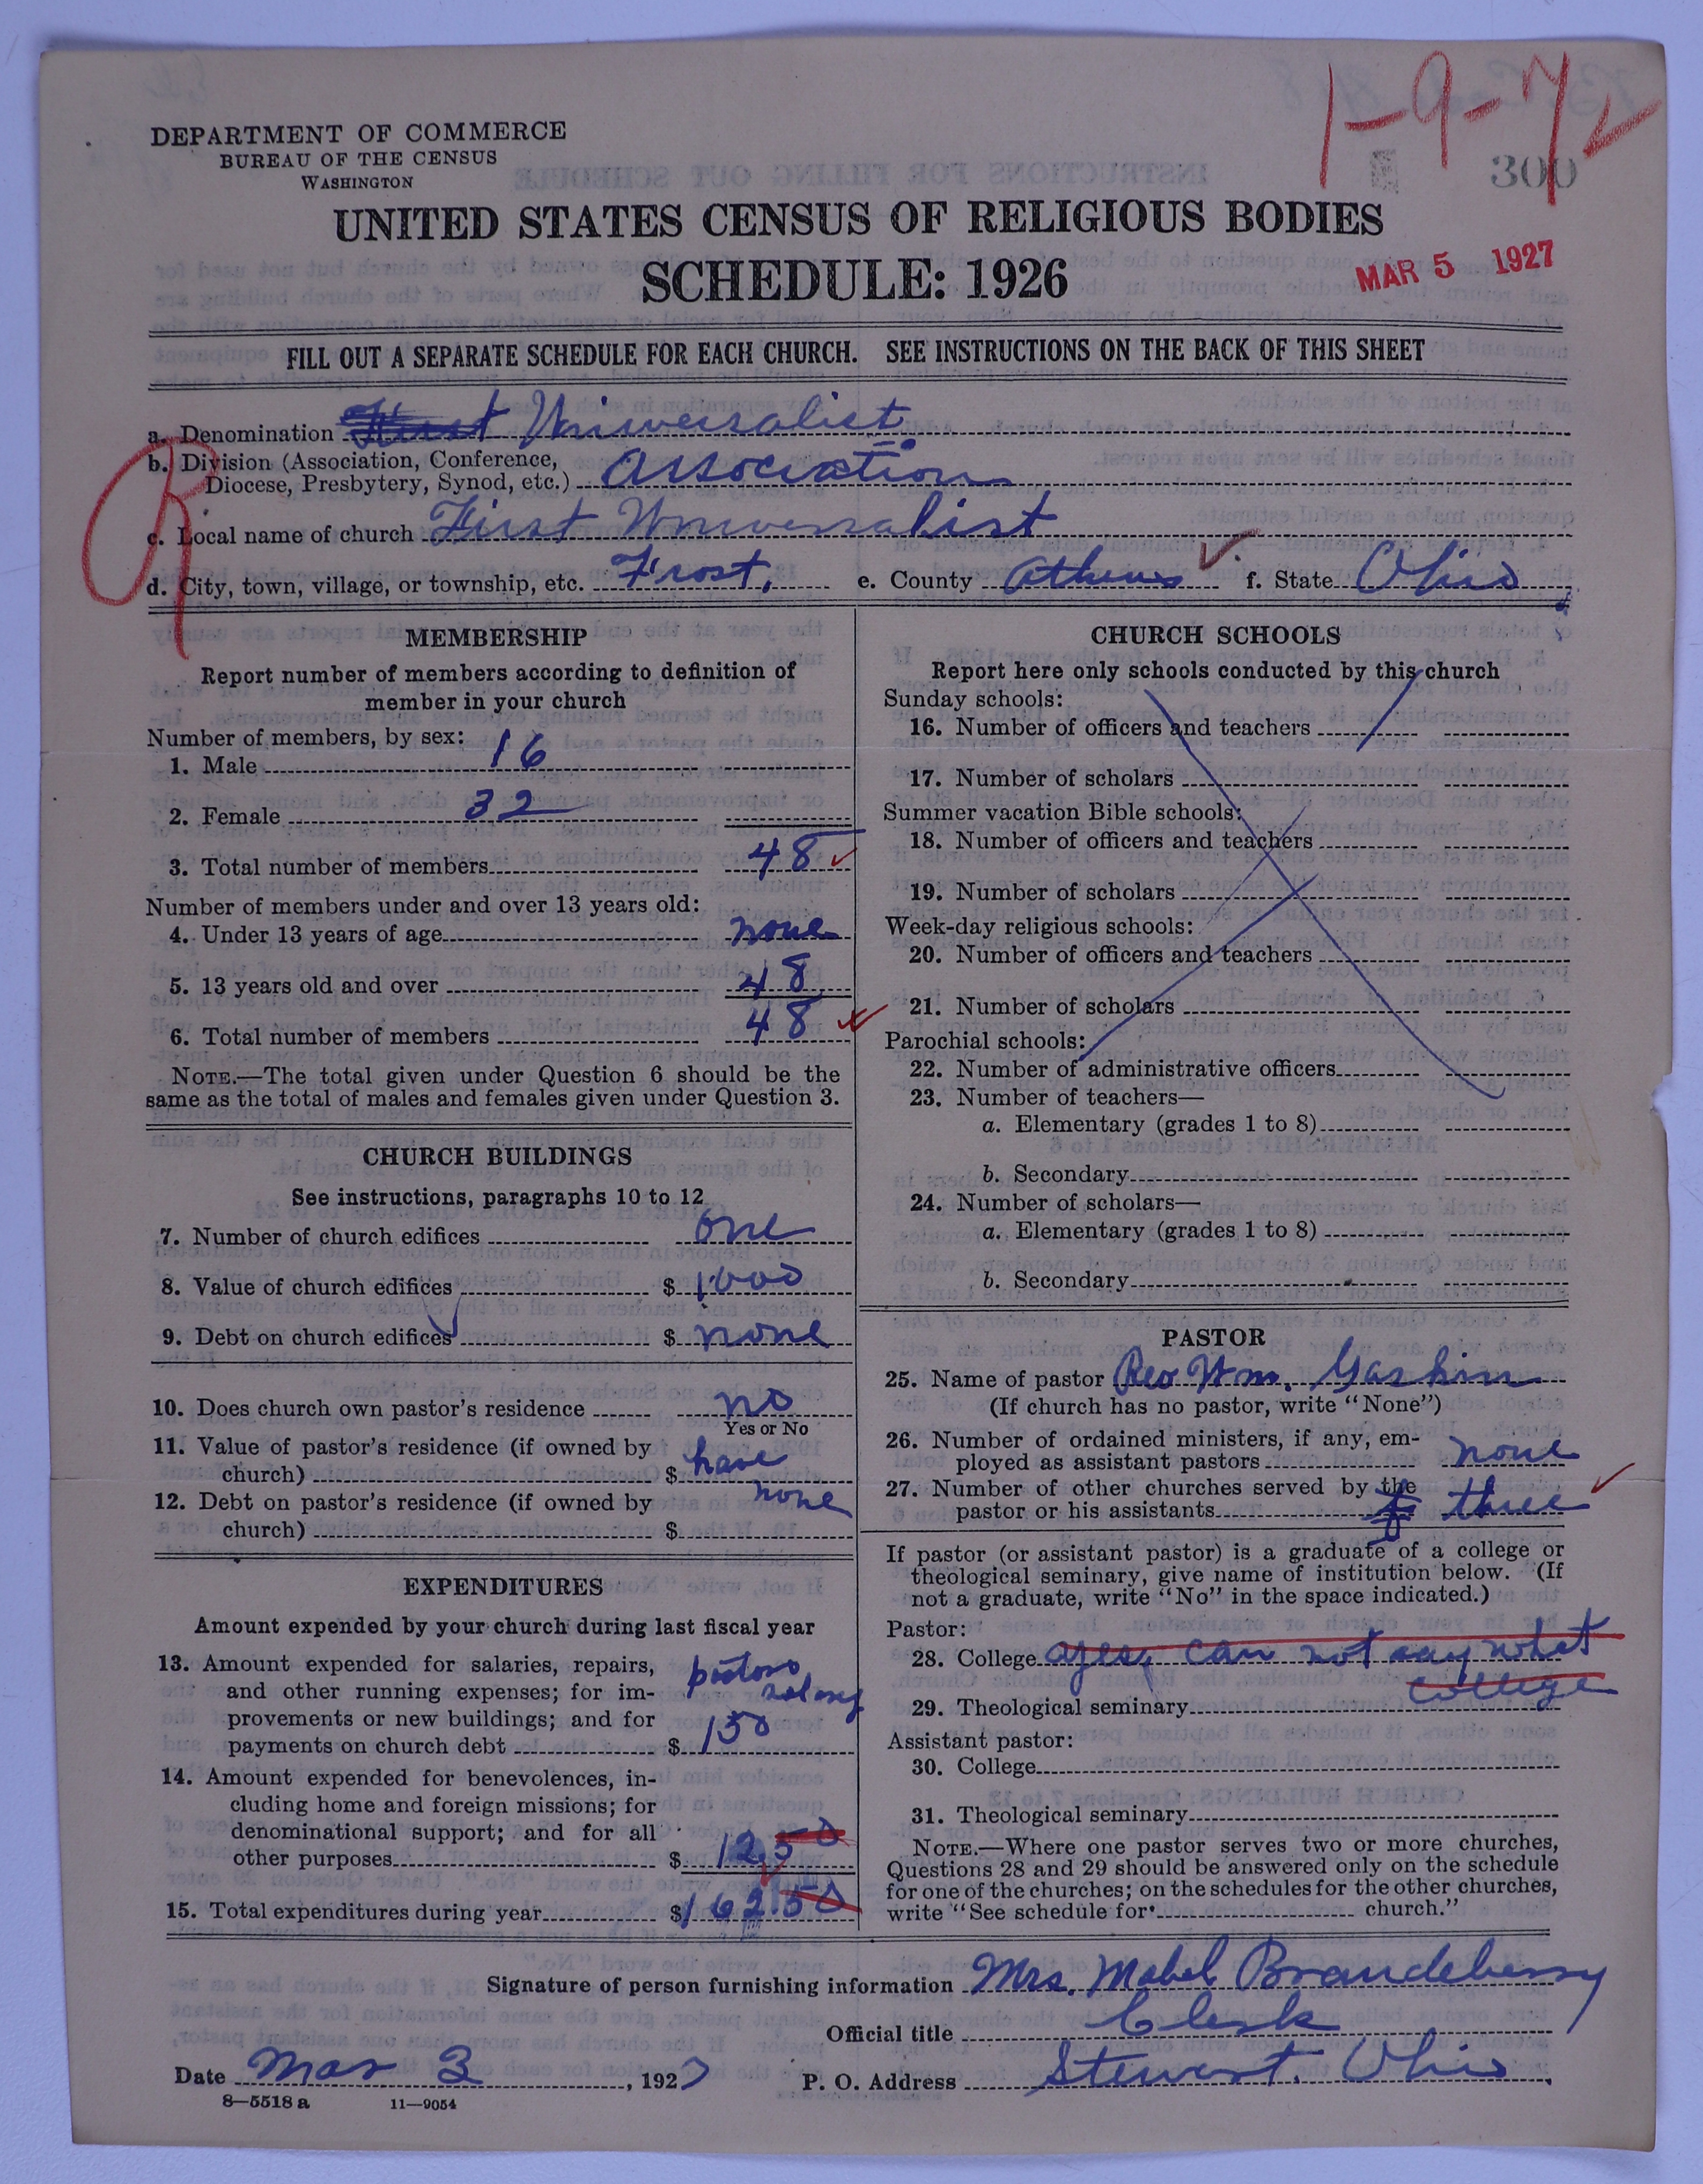 1-9-7
300
DEPARTMENT OF COMMERCE
BUREAU OF THE CENSUS
WASHINGTON
UNITED STATES CENSUS OF RELIGIOUS BODIES
SCHEDULE: 1926
MAR 5 1927
FILL OUT A SEPARATE SCHEDULE FOR EACH CHURCH. SEE INSTRUCTIONS ON THE BACK OF THIS SHEET
a. Denomination First Universalist
b. Division (Association, Conference,
Diocese, Presbytery, Synod, etc.) Association
c. Local name of church First Universalist
d. City, town, village, or township, etc. Frost, e. County Athens f. State Ohio
MEMBERSHIP
Report number of members according to definition of
member in your church
Number of members, by sex:
1. Male 16
2. Female 32
3. Total number of members 48
Number of members under and over 13 years old:
4. Under 13 years of age none
5. 13 years old and over 48
6. Total number of members 48
NOTE.—The total given under Question 6 should be the
same as the total of males and females given under Question 3.
CHURCH BUILDINGS
See instructions, paragraphs 10 to 12
7. Number of church edifices one
8. Value of church edifices $ 1000
9. Debt on church edifices $ none
10. Does church own pastor's residence no
Yes or No
11. Value of pastor's residence (if owned by
church) $ have
12. Debt on pastor's residence (if owned by none
church) $
EXPENDITURES
Amount expended by your church during last fiscal year
13. Amount expended for salaries, repairs, pastors
and other running expenses; for im- salary
provements or new buildings; and for
payments on church debt $ 150
14. Amount expended for benevolences, in-
cluding home and foreign missions; for
denominational support; and for all
other purposes $ 12.50
15. Total expenditures during year $ 162.50
CHURCH SCHOOLS
Report here only schools conducted by this church
Sunday schools:
16. Number of officers and teachers
17. Number of scholars
Summer vacation Bible schools:
18. Number of officers and teachers
19. Number of scholars
Week-day religious schools:
20. Number of officers and teachers
21. Number of scholars
Parochial schools:
22. Number of administrative officers
23. Number of teachers—
a. Elementary (grades 1 to 8)
b. Secondary
24. Number of scholars—
a. Elementary (grades 1 to 8)
b. Secondary
PASTOR
25. Name of pastor Rev Wm. Gaskin
(If church has no pastor, write "None")
26. Number of ordained ministers, if any, em-
ployed as assistant pastors none
27. Number of other churches served by the
pastor or his assistants three
If pastor (or assistant pastor) is a graduate of a college or
theological seminary, give name of institution below. (If
not a graduate, write "No" in the space indicated.)
Pastor:
28. College yes, can not say what
college
29. Theological seminary
Assistant pastor:
30. College
31. Theological seminary
NOTE.—Where one pastor serves two or more churches,
Questions 28 and 29 should be answered only on the schedule
for one of the churches; on the schedules for the other churches,
write "See schedule for church."
Signature of person furnishing information Mrs. Mabel Brandeberry
Official title Clerk
Date Mar 3, 1927 P. O. Address Stewart. Ohio
8—5518 a 11—9054